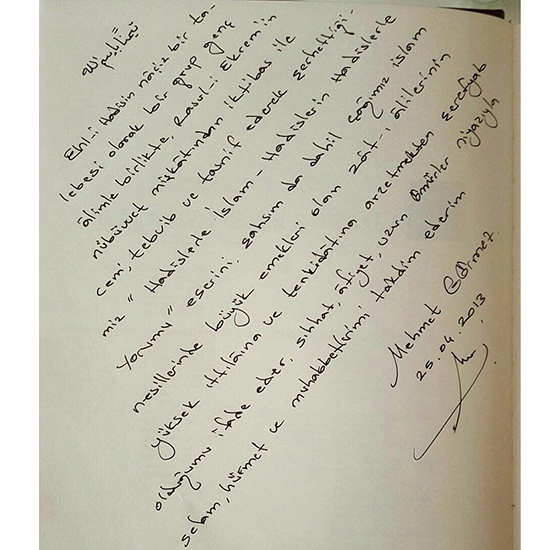 Ehl-i Hadisin nâçiz bir ta-
lebesi olarak bir grup genç
âlimle birlikte, Rasul-i Ekrem'in
nübüvvet mişkâtından iktibas ile
cem', tebvib ve tasnif ederek şerhettiği-
miz "Hadislerle İslam - Hadislerin Hadislerle
Yorumu" eserini, şahsım da dahil çağımız islam
nesillerinde büyük emekleri olan zât-ı âlilerinin
yüksek ıttılaına ve tenkidâtına arzetmekten şerefyab
olduğumu ifade eder, sıhhat, âfiyet, uzun ömürler niyazıyla
selam, hürmet ve muhabbetlerimi takdim ederim
Mehmet Görmez
25.04.2013